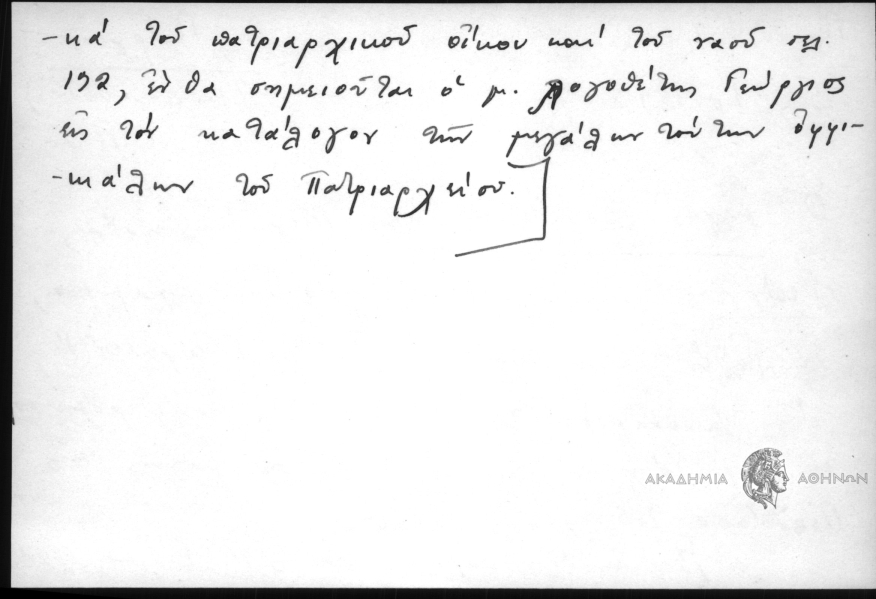 -κά τοῦ πατριαρχικοῦ οἴκου καί τοῦ ναοῦ σελ.
192, ἔνθα σημειοῦται ὁ μ. λογοθέτης Γεώργιος
εἰς τόν κατάλογον τῶν μεγάλων τούτων ὀφφι-
-κιάλων τοῦ Πατριαρχείου.
ΑΚΑΔΗΜΙΑ ΑΘΗΝΩΝ